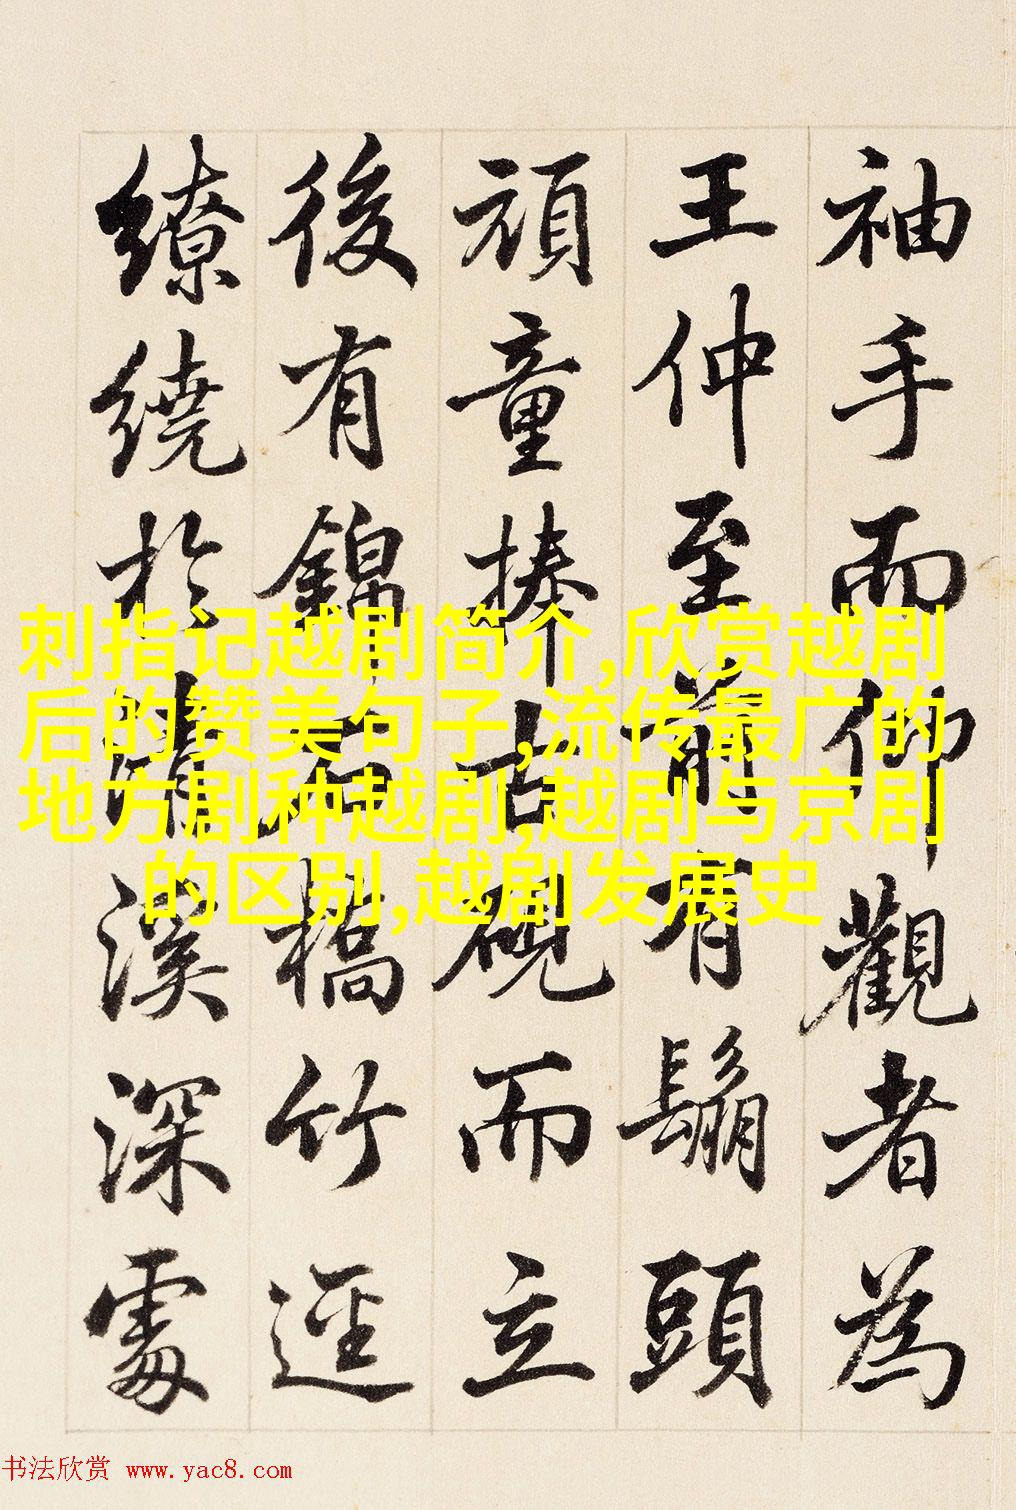 袖手而仰觀者為
王仲至前有鬅頭
頑童捧古硯而立
後有錦石橋竹逕
繚繞於清溪深處
刺指记越剧简介,欣赏越剧
后的赞美句子,流传最广的
地方剧种越剧,越剧与京剧
的区别,越剧发展史
书法欣赏 www.yac8.com